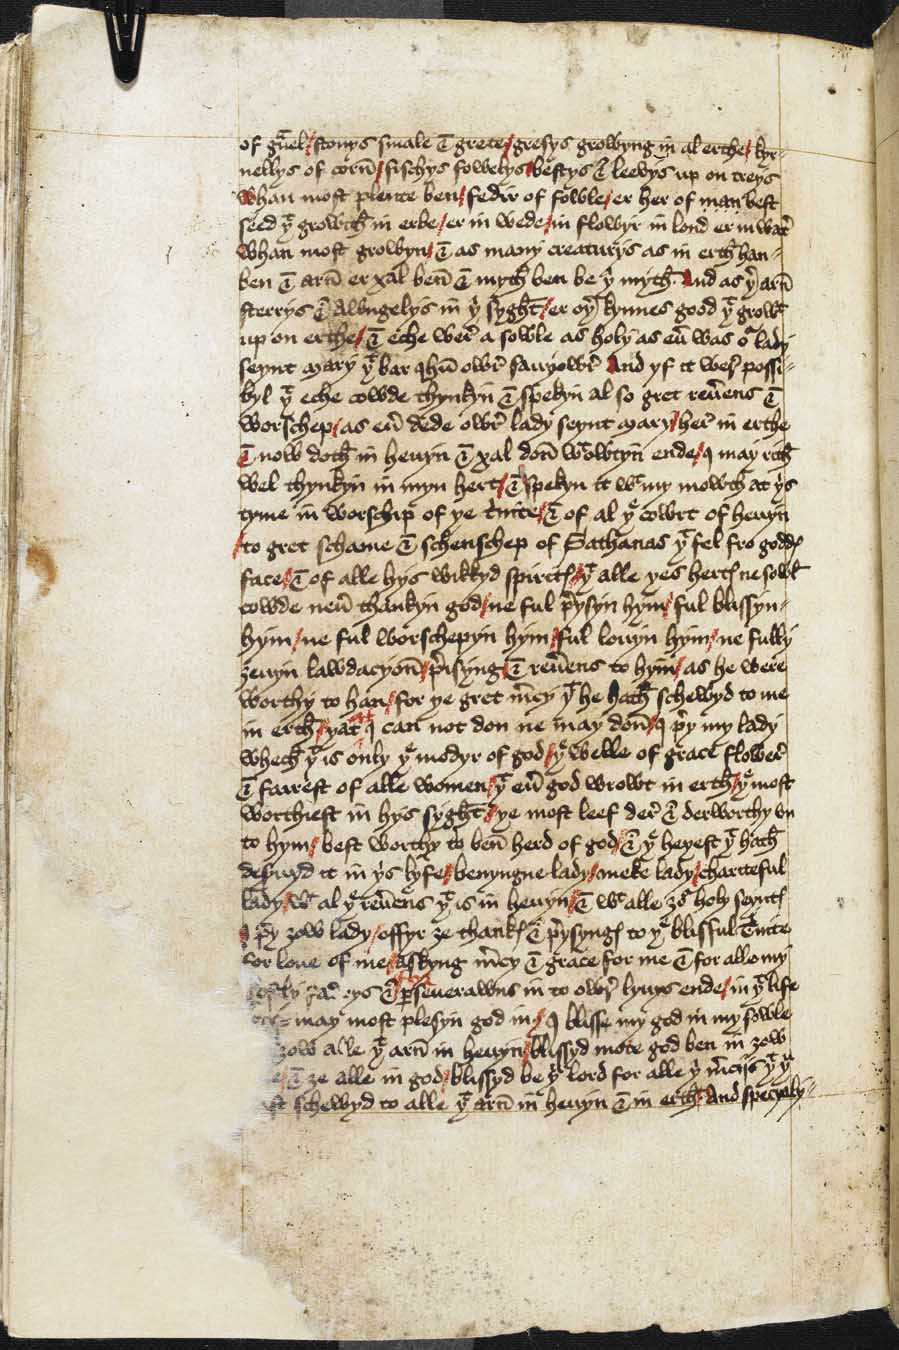 of gͬuel / stonys smale ⁊ grete / gresys growyng in al erthe / kyr-
nellys of corn̄ / fischys fowelys / bestys ⁊ leevys up on treys
whan most plente ben / fedir of fowle / er her of man best
seed yͭ growith in erbe / er in wede / in flowyr in lond er in watͬ
whan most growyn / ⁊ as many creaturys as in erth han-
ben ⁊ arn̄ er xal ben̄ ⁊ myth ben be yͥ myth. And as yͬ arn̄
sterrys ⁊ Awngelys in yͥ syght / er oyͬ kynnes good yͭ growͭ
up on erthe / ⁊ eche werͬ a sowle as holy as eūͬ was oͬ lady
seynt mary yͭ bar ihū owrͬ sauyowrͬ And yf it werͬ possi-
byl yͭ eche cowde thynkyn ⁊ spekyn al so gret reuͬens ⁊
worschep / as euͬ dede owrͬ lady seynt mary / herͬ in erthe
⁊ now doth in heuyn ⁊ xal don̄ wͭowtyn̄ ende / I may rith
wel thynkyn in myn hert / ⁊ spekyn it wͭ my mowth at yͥs
tyme in worschip of ye tͥnite / ⁊ of al yͤ cowrt of heuyn
/ to gret schame ⁊ schenschep of Sathanas yͭ fel fro goddꝭ
face / ⁊ of alle hys wikkyd spiritꝭ / yͭ alle yes hertꝭ ne sowlꝭ
cowde neuͬ thankyn god / ne ful pͬysyn hym / ful blissyn-
hym / ne ful worschepyn hym / ful louyn hym / ne fully
ȝeuyn lawdacyon̄ / pͬisyng / ⁊ reuͬens to hym / as he were
worthy to han / for ye gret mͬcy yͭ he hath schewyd to me
in erth / yat I can not don ne may don̄ / I pͬy my lady
whech yͭ is only yͤ modyr of god / yͤ welle of grace flowerͬ
⁊ farrest of alle women / yͭ euͬ god wrowt in erth / yͤ most
worthiest in hys syght / ye most leef derͬ ⁊ derworthy vn
to hym / best worthy to ben̄ herd of god / ⁊ yͤ heyest yͭ hath
deseruyd it in yͥs lyfe / benyngne lady / meke lady / chariteful
lady / wͭ al yͤ reuͬens yͭ is in heuyn / ⁊ wͭ alle ȝoͬ holy seyntꝭ
I pͬy ȝow lady / offyr ȝe thankꝭ ⁊ pͬysyngꝭ to yͤ blisful tͬnite
for loue of me / askyng mͬcy ⁊ grace for me ⁊ for alle my
⁊ ꝑseuerawns in to owrͬ lyuys ende / in yͭ life
may most plesyn god in / I blisse my god in my sowle
ȝow alle yͭ arn̄ in heuyn / blissyd mote god ben in ȝow
/ ⁊ ȝe alle in god / blissyd be yͧ lord for alle yͥ mͬcijs yͭ yͧ
schewyd to alle yͭ arn̄ in heuyn ⁊ in erth. And specyaly